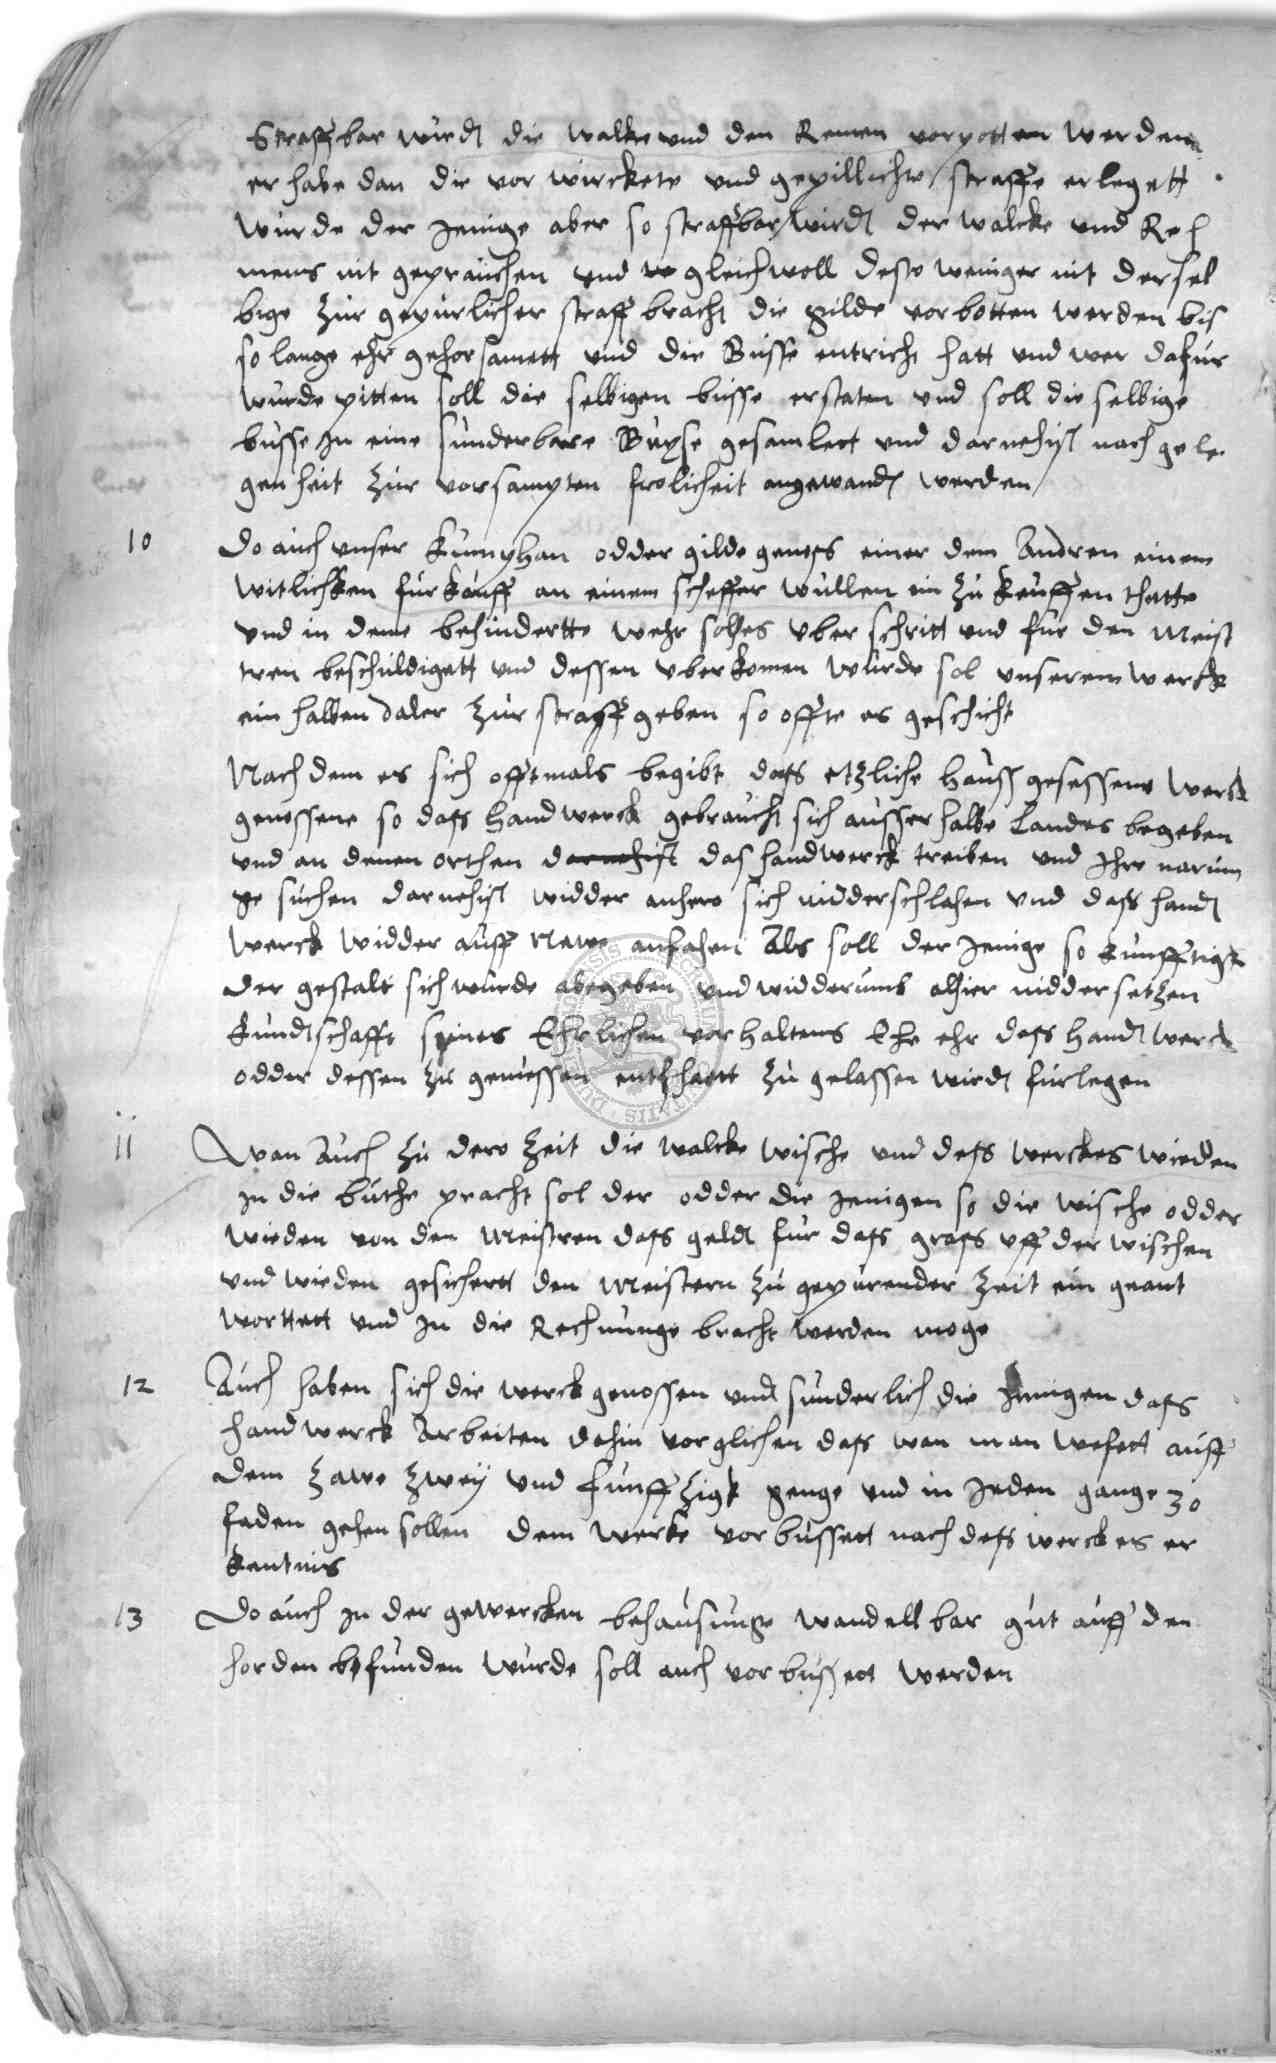 Straffbar wirdt die walke und den Remen vorpotten werden
er habe dan die vor wirckete und gepillichte straffe erlegett
wurde der Jenige aber so straffbar wirdt der walcke und Reh
mens nit gepraüchen und gleichwoll desto weniger nit dersel
bige zür gepürlicher straff bracht die gilde vorbotten werden bis
so lange ehr gehorsamett und die Büsse entricht hatt und wer dafür
würde pitten soll die selbigen büsse erstaten und soll die selbige
büsse In eine sünderbare Büxse gesamlett und darnehist nach gele
genheit zür vorsampten frolicheit angewandt werden
10 Do aüch unser Kumphan odder gilde genoss einer dem Andren einem
witlichken fürkaüff an einem scheffer wüllen ein zü keüffen thette
und in deme behindertte wehr solhes uber schritt und für den Meist
tren beschüldigett und dessen uberkomen würde sol unserem werck
ein halben daler zür straff geben so offte es geschicht
Nach dem es sich offtmals begibt dass etzliche haüss gesessene werck
genossene so dass handwerck gebraücht sich aüsserhalbe Landes begeben
und an denen orthen darnehist das handwerck treiben und Ihre narün
ge süchen darnehist widder anhero sich nidderschlahen und dass handt
werck widder aüff Nawe anfahen Als soll der Jenige so künfftigk
der gestalt sich würde abegeben und widderümb alhier niddersetzen
Kündtschafft seines Ehrlichen vorhaltens Ehe ehr dass handtwerck
odder dessen zü geniessen zü gelassen wirdt fürlegen
11 Wan Aüch zü dero Zeit die walcke wische und dess werckes wieden
In die büthe pracht sol der odder die Jenigen so die wische odder
wieden von den Meistren dass geldt für dass grass uff der wischen
und wieden gesichert den Meistern zü gepürender Zeit ein geant
worttett und In die Rechnünge bracht werden moge
12 Aüch haben sich die werckgenossen und sünderlich die Jenigen dass
handwerck Arbeiten dahin vorglichen dass wan man wefett aüff
dem Zawe zweÿ und fünffzigk genge und in Jeden gange 30
faden gehen sollen dem wercke vorbüssett nach dess werckes er
kentnis
13 Do aüch In der gewercken behaüsünge wandellbar güt aüff den
horden befunden würde soll auch vorbüssett werden